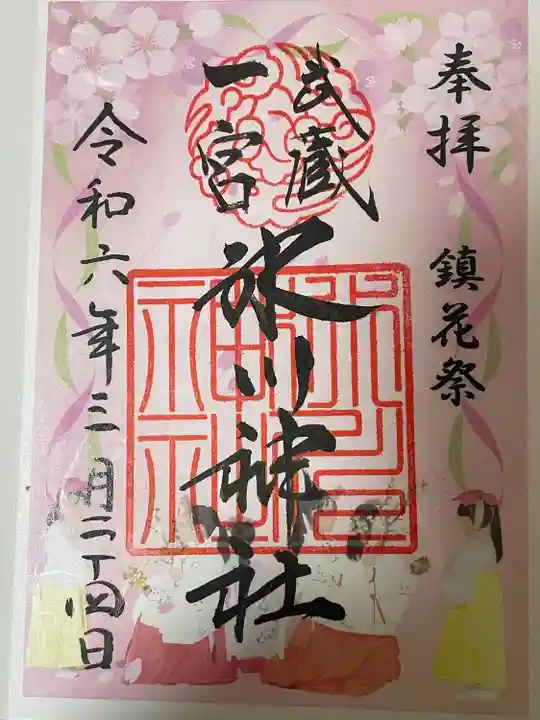 奉拝 鎮花祭
武蔵
一宮
氷川神社
令和六年三月二十四日
氷川神社